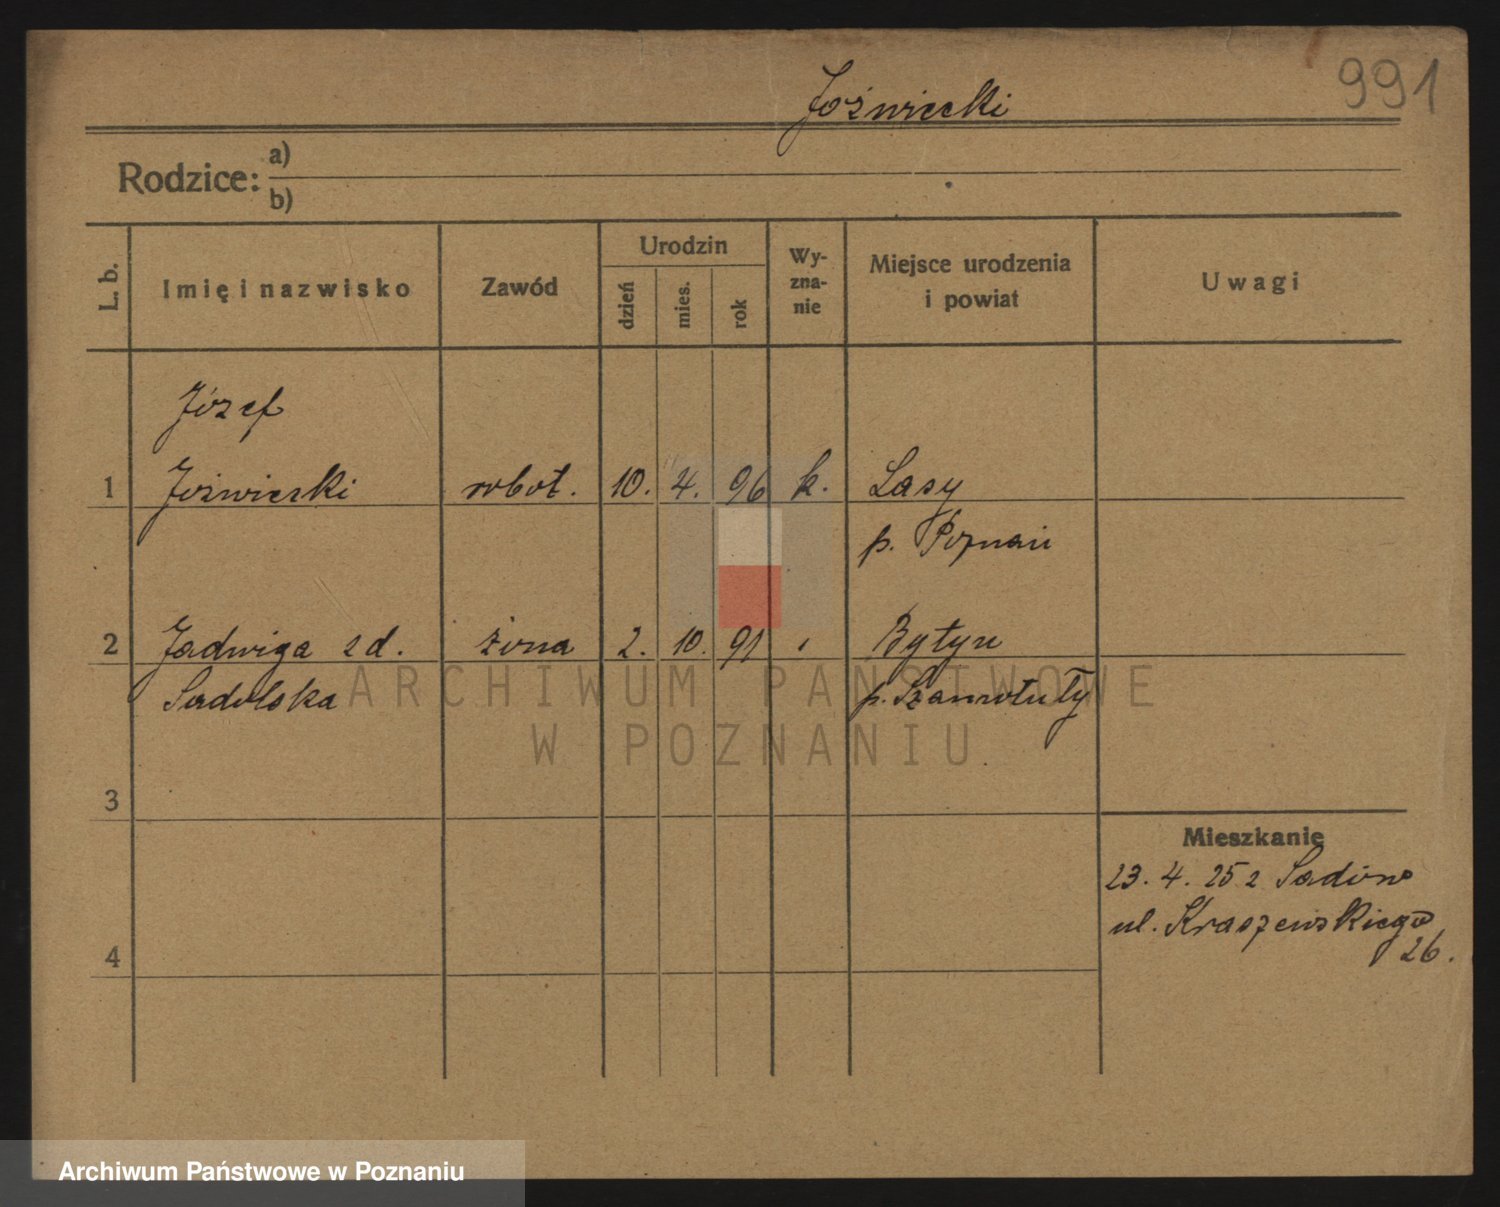 991
Jóźwiecki
Rodzice:
a)
b)
L. b.
Imię i nazwisko
Zawód
Urodzin
dzień
mies.
rok
Wy-
zna-
nie
Miejsce urodzenia
i powiat
Uwagi
Józef
1 Jóźwiecki robot. 10. 4. 96 k. Lasy
p. Poznań
2 Jadwiga z d. żona 2. 10. 91 Bytyn
Sadolska p. Szamotuły
3
4
Mieszkanie
23. 4. 25 z Sadów
ul. Kraszewskiego
26.
ARCHIWUM PAŃSTWOWE
W POZNANIU
Archiwum Państwowe w Poznaniu